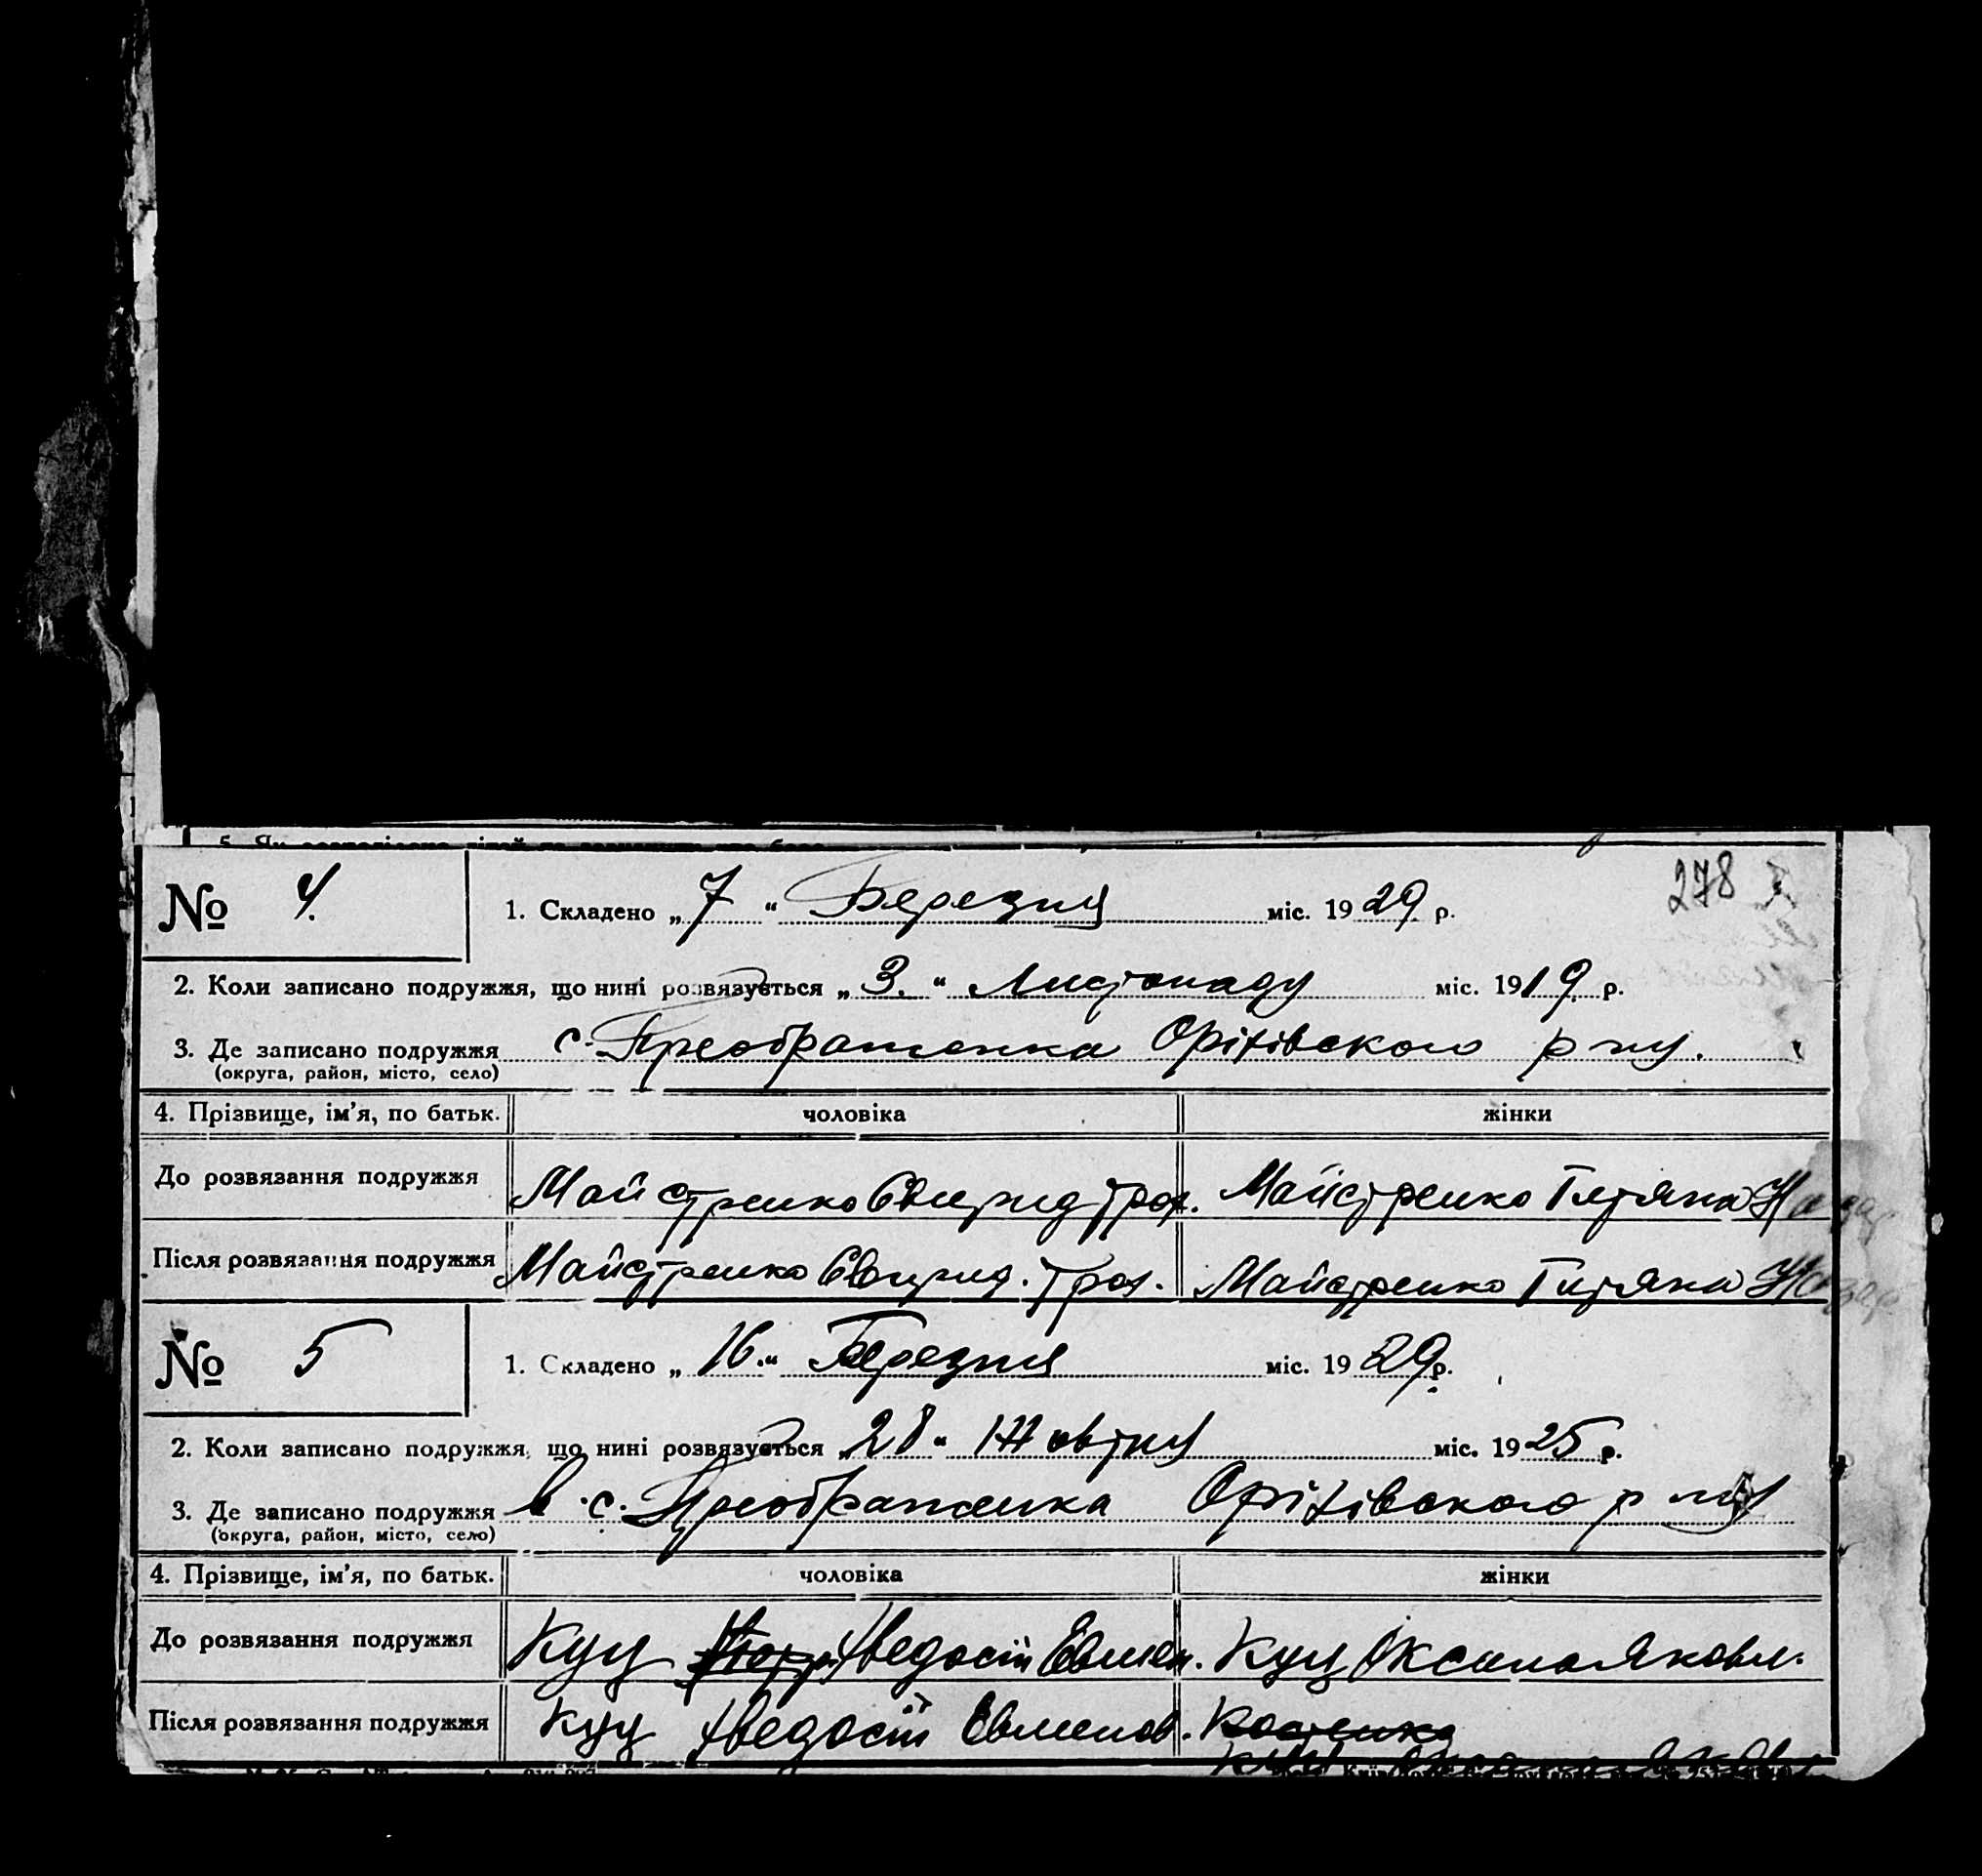 278
№ 4. 1. Складено „7" Березня міс. 1929 р.
2. Коли записано подружжя, що нині розвязується „3." Листопаду міс. 1919 р.
3. Де записано подружжя с. Преображенка Оріхівского р-ну.
(округа, район, місто, село)
4. Прізвище, ім'я, по батьк. чоловіка жінки
До розвязання подружжя Майстренко Свирид Гров. Майстренко Титяна Назар
Після розвязання подружжя Майстренко Свирид. Майстренко Титяна Назар
№ 5 1. Складено „16." Березня міс. 1929 р.
2. Коли записано подружжя, що нині розвязується „28" Жовтня міс. 1925 р.
3. Де записано подружжя в с. Преображенка Оріхівского р-ну
(округа, район, місто, село)
4. Прізвище, ім'я, по батьк. чоловіка жінки
До розвязання подружжя Куц Хведосій Евмен. Куц Оксана Яковл.
Після розвязання подружжя Куц Хведосій Евменов. Костенко